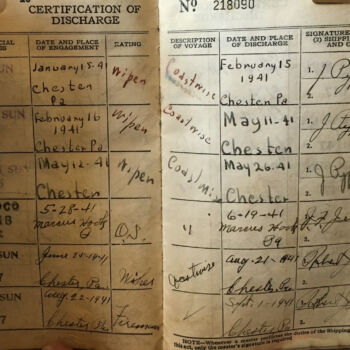 CERTIFICATION OF
DISCHARGE
DATE AND PLACE
OF ENGAGEMENT
RATING
SUN
January 15-41
Wiper
Chester
Pa
SUN
February 16
1941
Wiper
Chester Pa
SUN
May 12-41
Wiper
Chester
OCO
5-28-41
18
Marcus Hook
O.S.
SUN
June 24-1941
7
Chester Pa.
Wiper
SUN
Aug. 22-1941
7
Chester Pa
Fireman
No 218090
DESCRIPTION
OF VOYAGE
DATE AND PLACE
OF DISCHARGE
SIGNATURE
(2) SHIPPING
Coastwise
February 15
1941
1. J
Chester Pa
2.
Coastwise
May 11-41
1. J
Chester Pa
2.
Coastwise
May 26-41
1. J
Chester
2.
"
6-19-41
Marcus Hook
Pa
2.
Coastwise
Aug-21-1941
1.
Chester Pa.
2.
Sept-1-1941
1.
Chester Pa
2.
NOTE—Whenever a master performs the duties of the Shipping
this act, only the master's signature is required